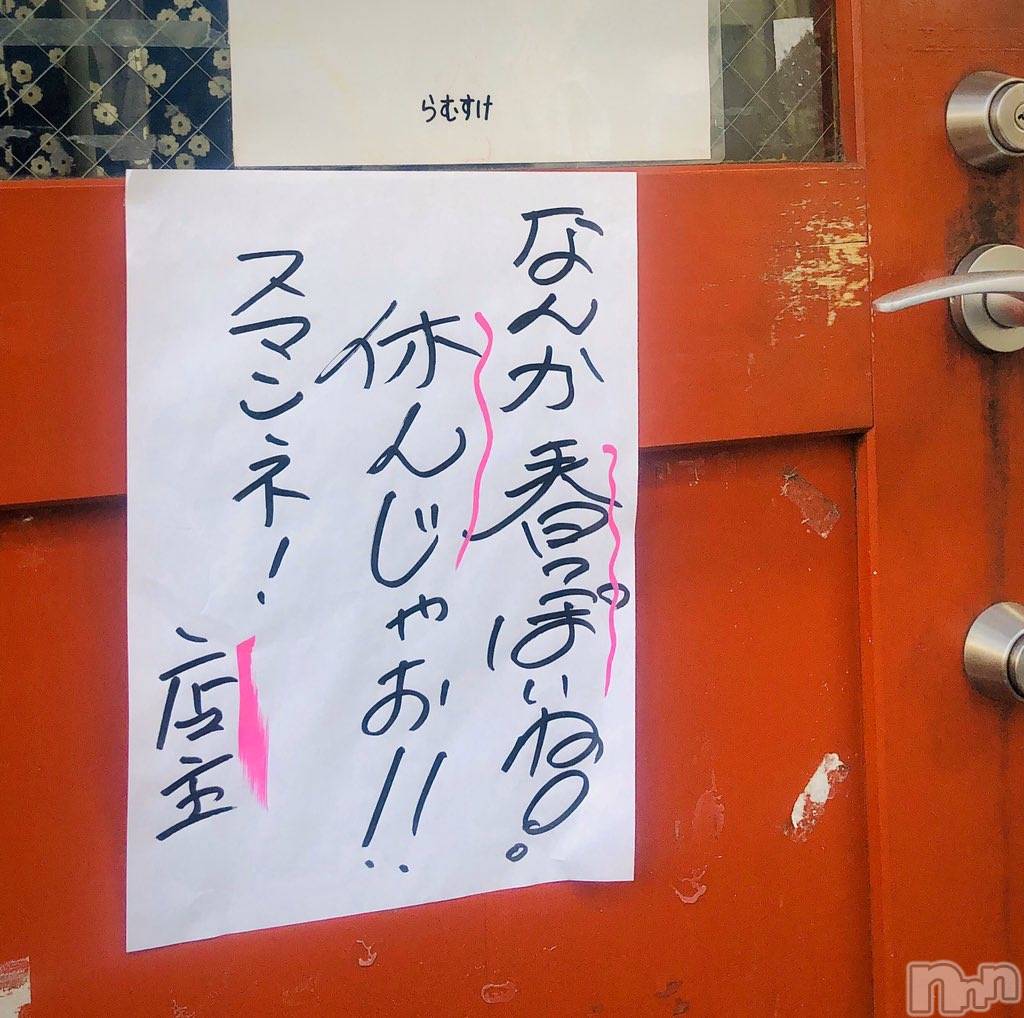 らむすけ
なんか春っぽいね。
休んじゃお!!
スマンネ!
店主
nnn